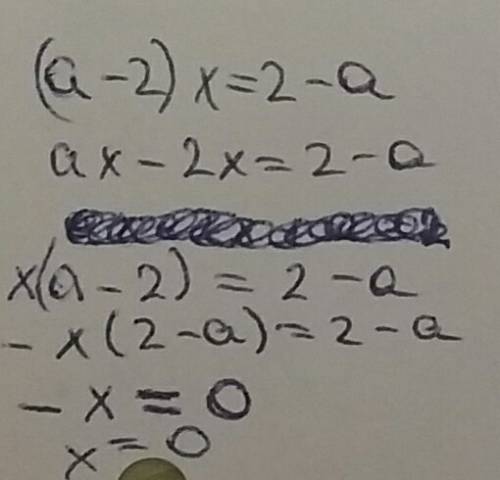 (a-2) x=2-a
ax-2x=2-a
x(a-2)=2-a
-x(2-a)=2-a
-x=0
x=0